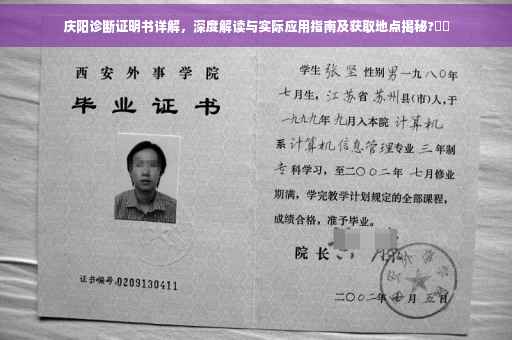 庆阳诊断证明书详解，深度解读与实际应用指南及获取地点揭秘?
西安外事学院
毕业证书
证书编号:0209130411
学生 张坚 性别 男 一九八〇年
七月生，江苏省 苏州县(市)人，于
一九九九年 九月入本院 计算机
系 计算机信息管理专业 三 年制
专科学习，至二〇〇二年 七月修业
期满，学完教学计划规定的全部课程，
成绩合格，准予毕业。
院长
二〇〇二年 月 五日